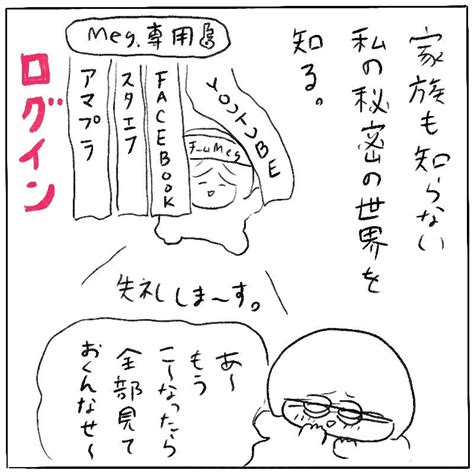 家族も知らない
私の秘密の世界を
知る。
Meg.専用
YOUTUBE
FACEBOOK
スタエフ
アマプラ
ログイン
失礼しま〜す。
あ〜
もう
こ〜なったら
全部見て
おくんなせ〜